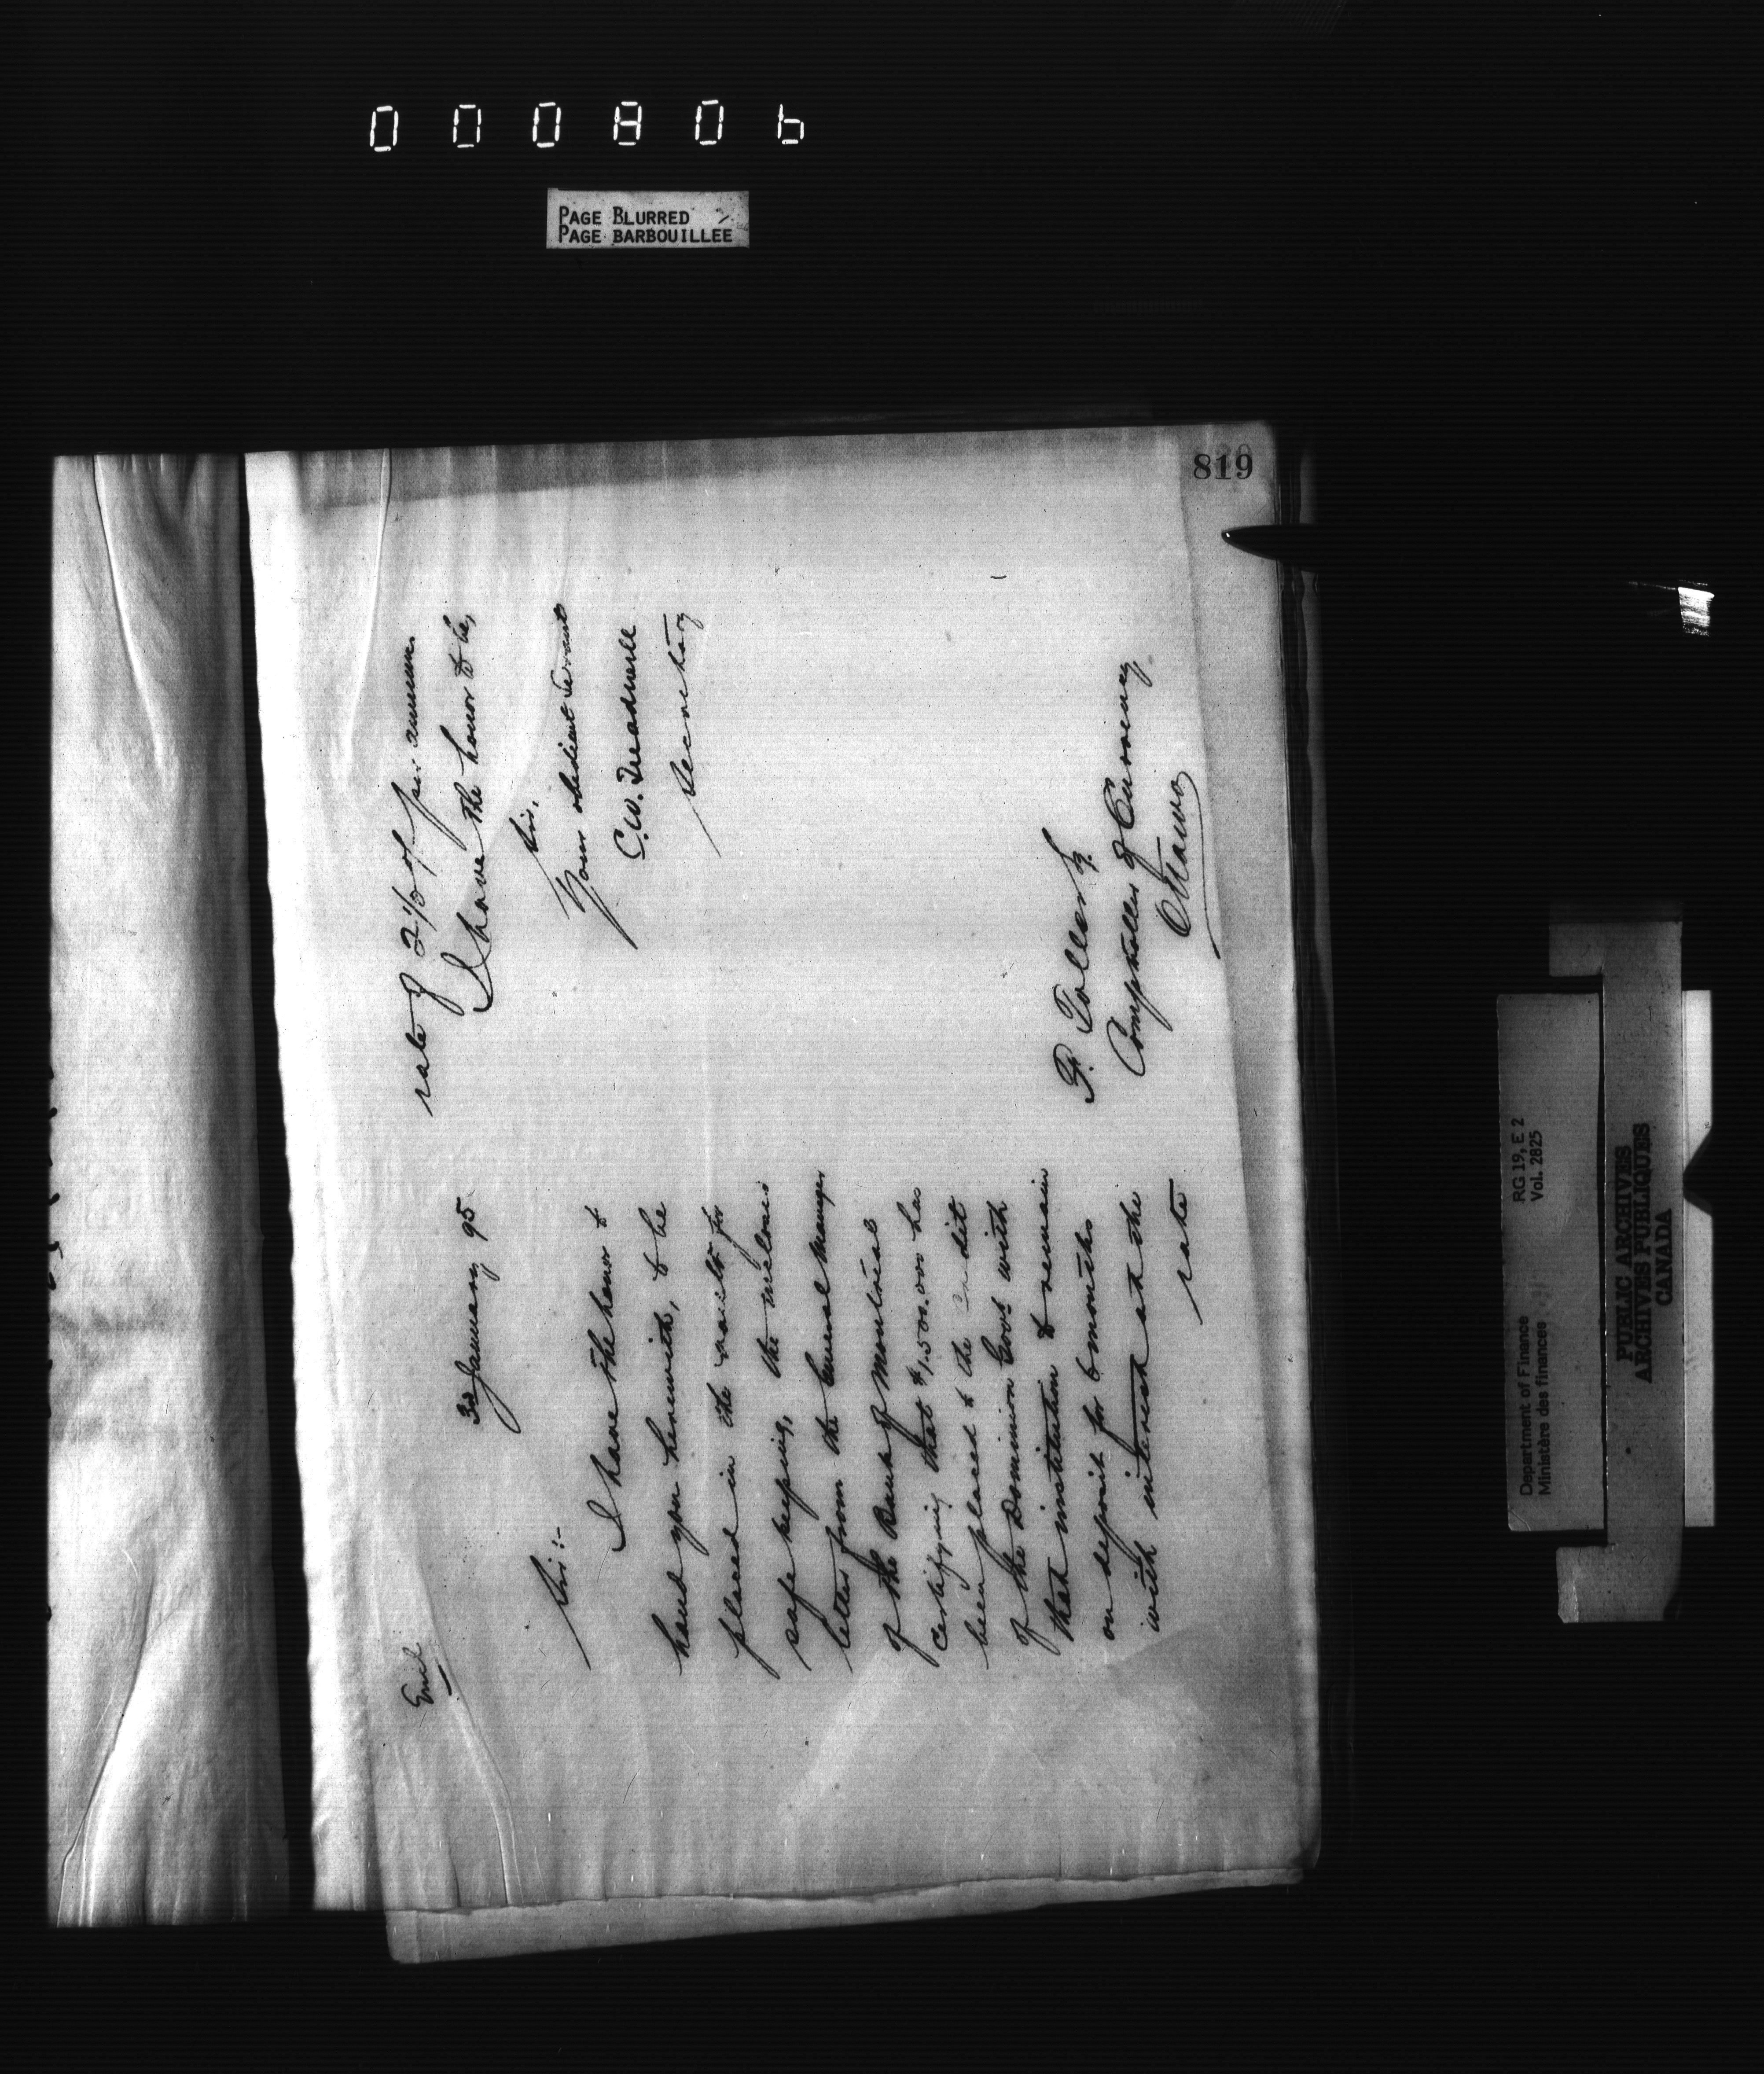 000806
PAGE BLURRED
PAGE BARBOUILLEE
819
Encl
3d January 95
Sir:-
I have the honor to
hand you herewith, to be
placed in the vaults for
safe keeping, the inclosed
letter from the General Manager
of the Bank of Montreal
certifying that $1,500,000 has
been placed to the credit
of the Dominion Govt with
that institution to remain
on deposit for 6 months
with interest at the
rate
rate of 2½ % per annum
I have the honor to be,
Sir,
Your obedient Servant
C.W. Treadwell
Secretary
P. Toller
Comptroller of Currency
Ottawa
Department of Finance
Ministère des finances
RG 19, E 2
Vol. 2825
PUBLIC ARCHIVES
ARCHIVES PUBLIQUES
CANADA